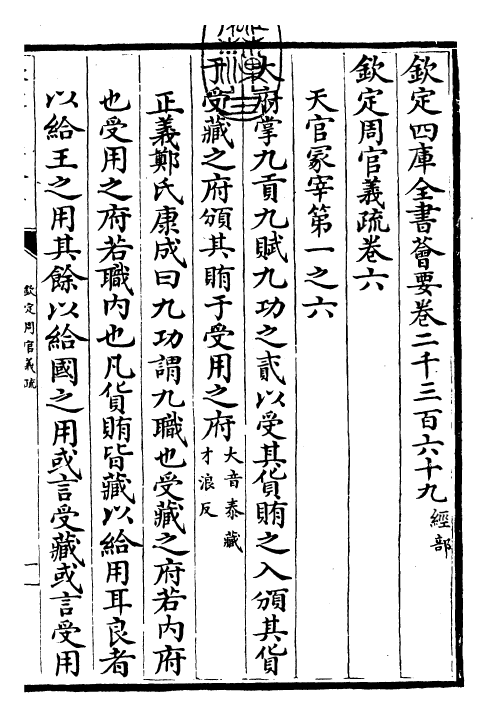 欽定四庫全書薈要卷二千三百六十九 經部
欽定周官義疏卷六
天官冢宰第一之六
大府掌九貢九賦九功之貳以受其貨賄之入頒其貨
于受藏之府頒其賄于受用之府 大音泰藏才浪反
正義鄭氏康成曰九功謂九職也受藏之府若內府
也受用之府若職內也凡貨賄皆藏以給用耳良者
以給王之用其餘以給國之用或言受藏或言受用
欽定周官義疏
一